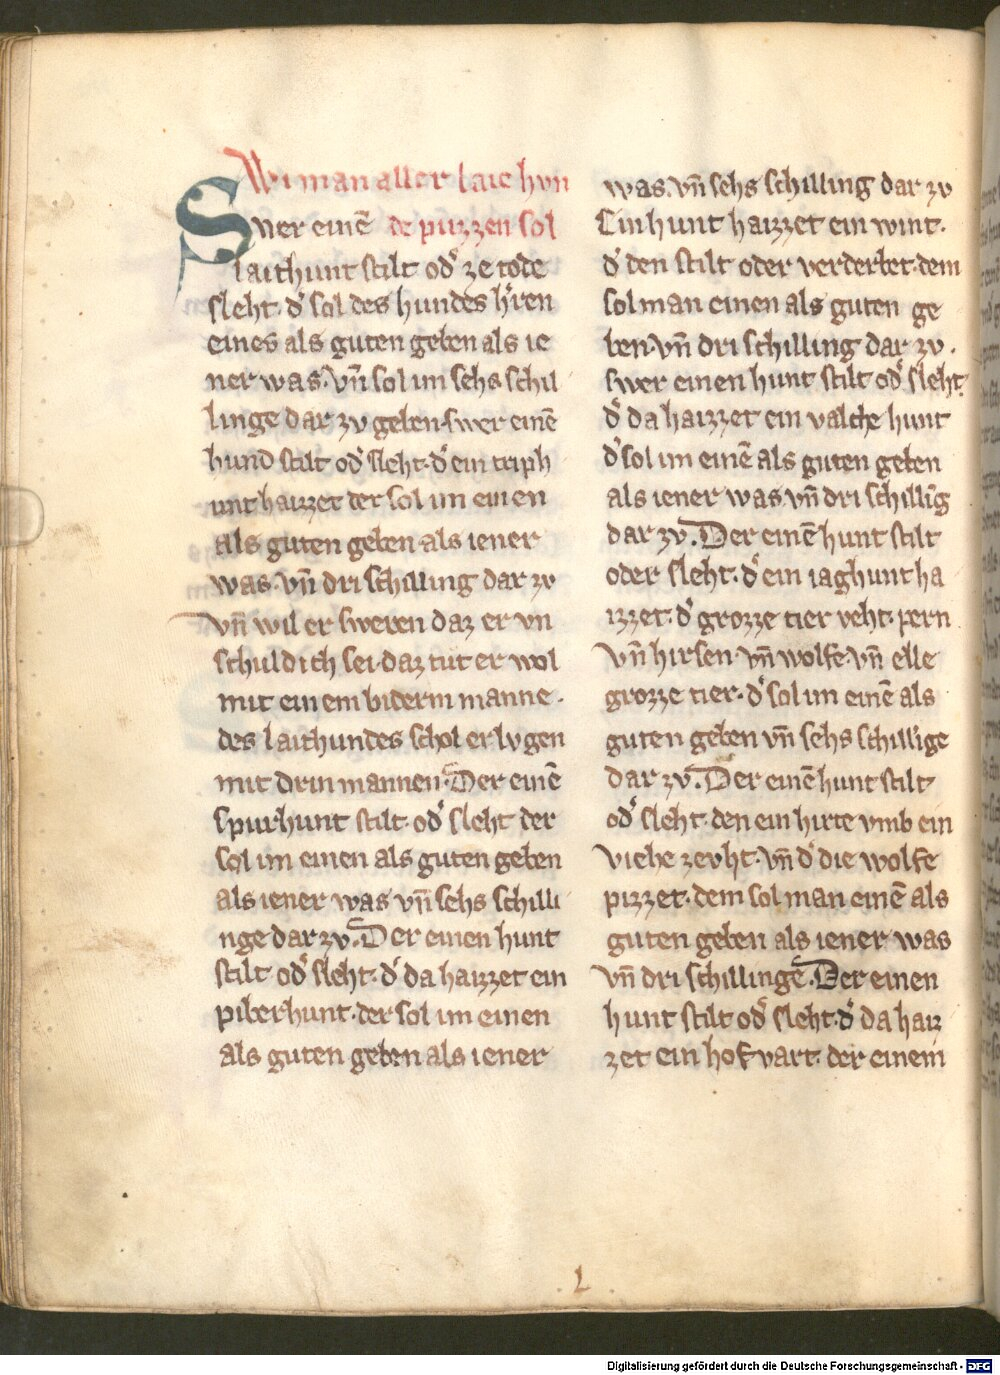 Wi man aller laie hvn
Swer einē de puzzen sol
laithunt stilt od͛ ze tode
sleht. d͛ sol des hundes h͛ren
eines als guten geben als ie
ner was. vn̄ sol im sehs schil
linge dar zv geben. swer einē
hund stilt od͛ sleht. d͛ ein triph
unt haizzet der sol im einen
als guten geben als iener
was. vn̄ dri schilling dar zv
vn̄ wil er sweren daz er vn
schuldich sei. daz tut er wol
mit einem biderm manne.
des laithundes schol er lvgen
mit drin mannen. Der einē
spurhunt stilt. od͛ sleht der
sol im einen als guten geben
als iener was vn̄ sehs schilli
nge dar zv. Der einen hunt
stilt od͛ sleht. d͛ da haizzet ein
piberhunt. der sol im einen
als guten geben als iener
was. vn̄ sehs schilling dar zv
Ein hunt haizzet ein wint.
d͛ den stilt oder verderbet. dem
sol man einen als guten ge
ben. vn̄ dri schilling dar zv.
swer einen hunt stilt od͛ sleht.
d͛ da haizzet ein valche hunt
d͛ sol im einē als guten geben
als iener was vn̄ dri schillīg
dar zv. Der einē hunt stilt
oder sleht. d͛ ein iaghunt ha
izzet. d͛ grozze tier veht. pern
vn̄ hirsen. vn̄ wolfe. vn̄ elle
grozze tier. d͛ sol im einē als
guten geben vn̄ sehs schillige
dar zv. Der einē hunt stilt
od͛ sleht. den ein hirte vmb ein
viehe zevht. vn̄ d͛ die wolfe
pizzet. dem sol man einē als
guten geben als iener was
vn̄ dri schillinge. Der einen
hunt stilt od͛ sleht. d͛ da haiz
zet ein hofvart. der einem
Digitalisierung gefördert durch die Deutsche Forschungsgemeinschaft - DFG